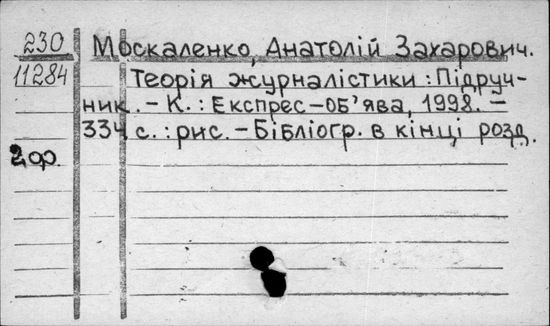 230 Москаленко, Анатолій Захарович.
11284 Теорія журналістики : Підруч-
ник. – К. : Експрес-об'ява, 1998. –
334 с. : рис. – Бібліогр. в кінці розд.
2ор.